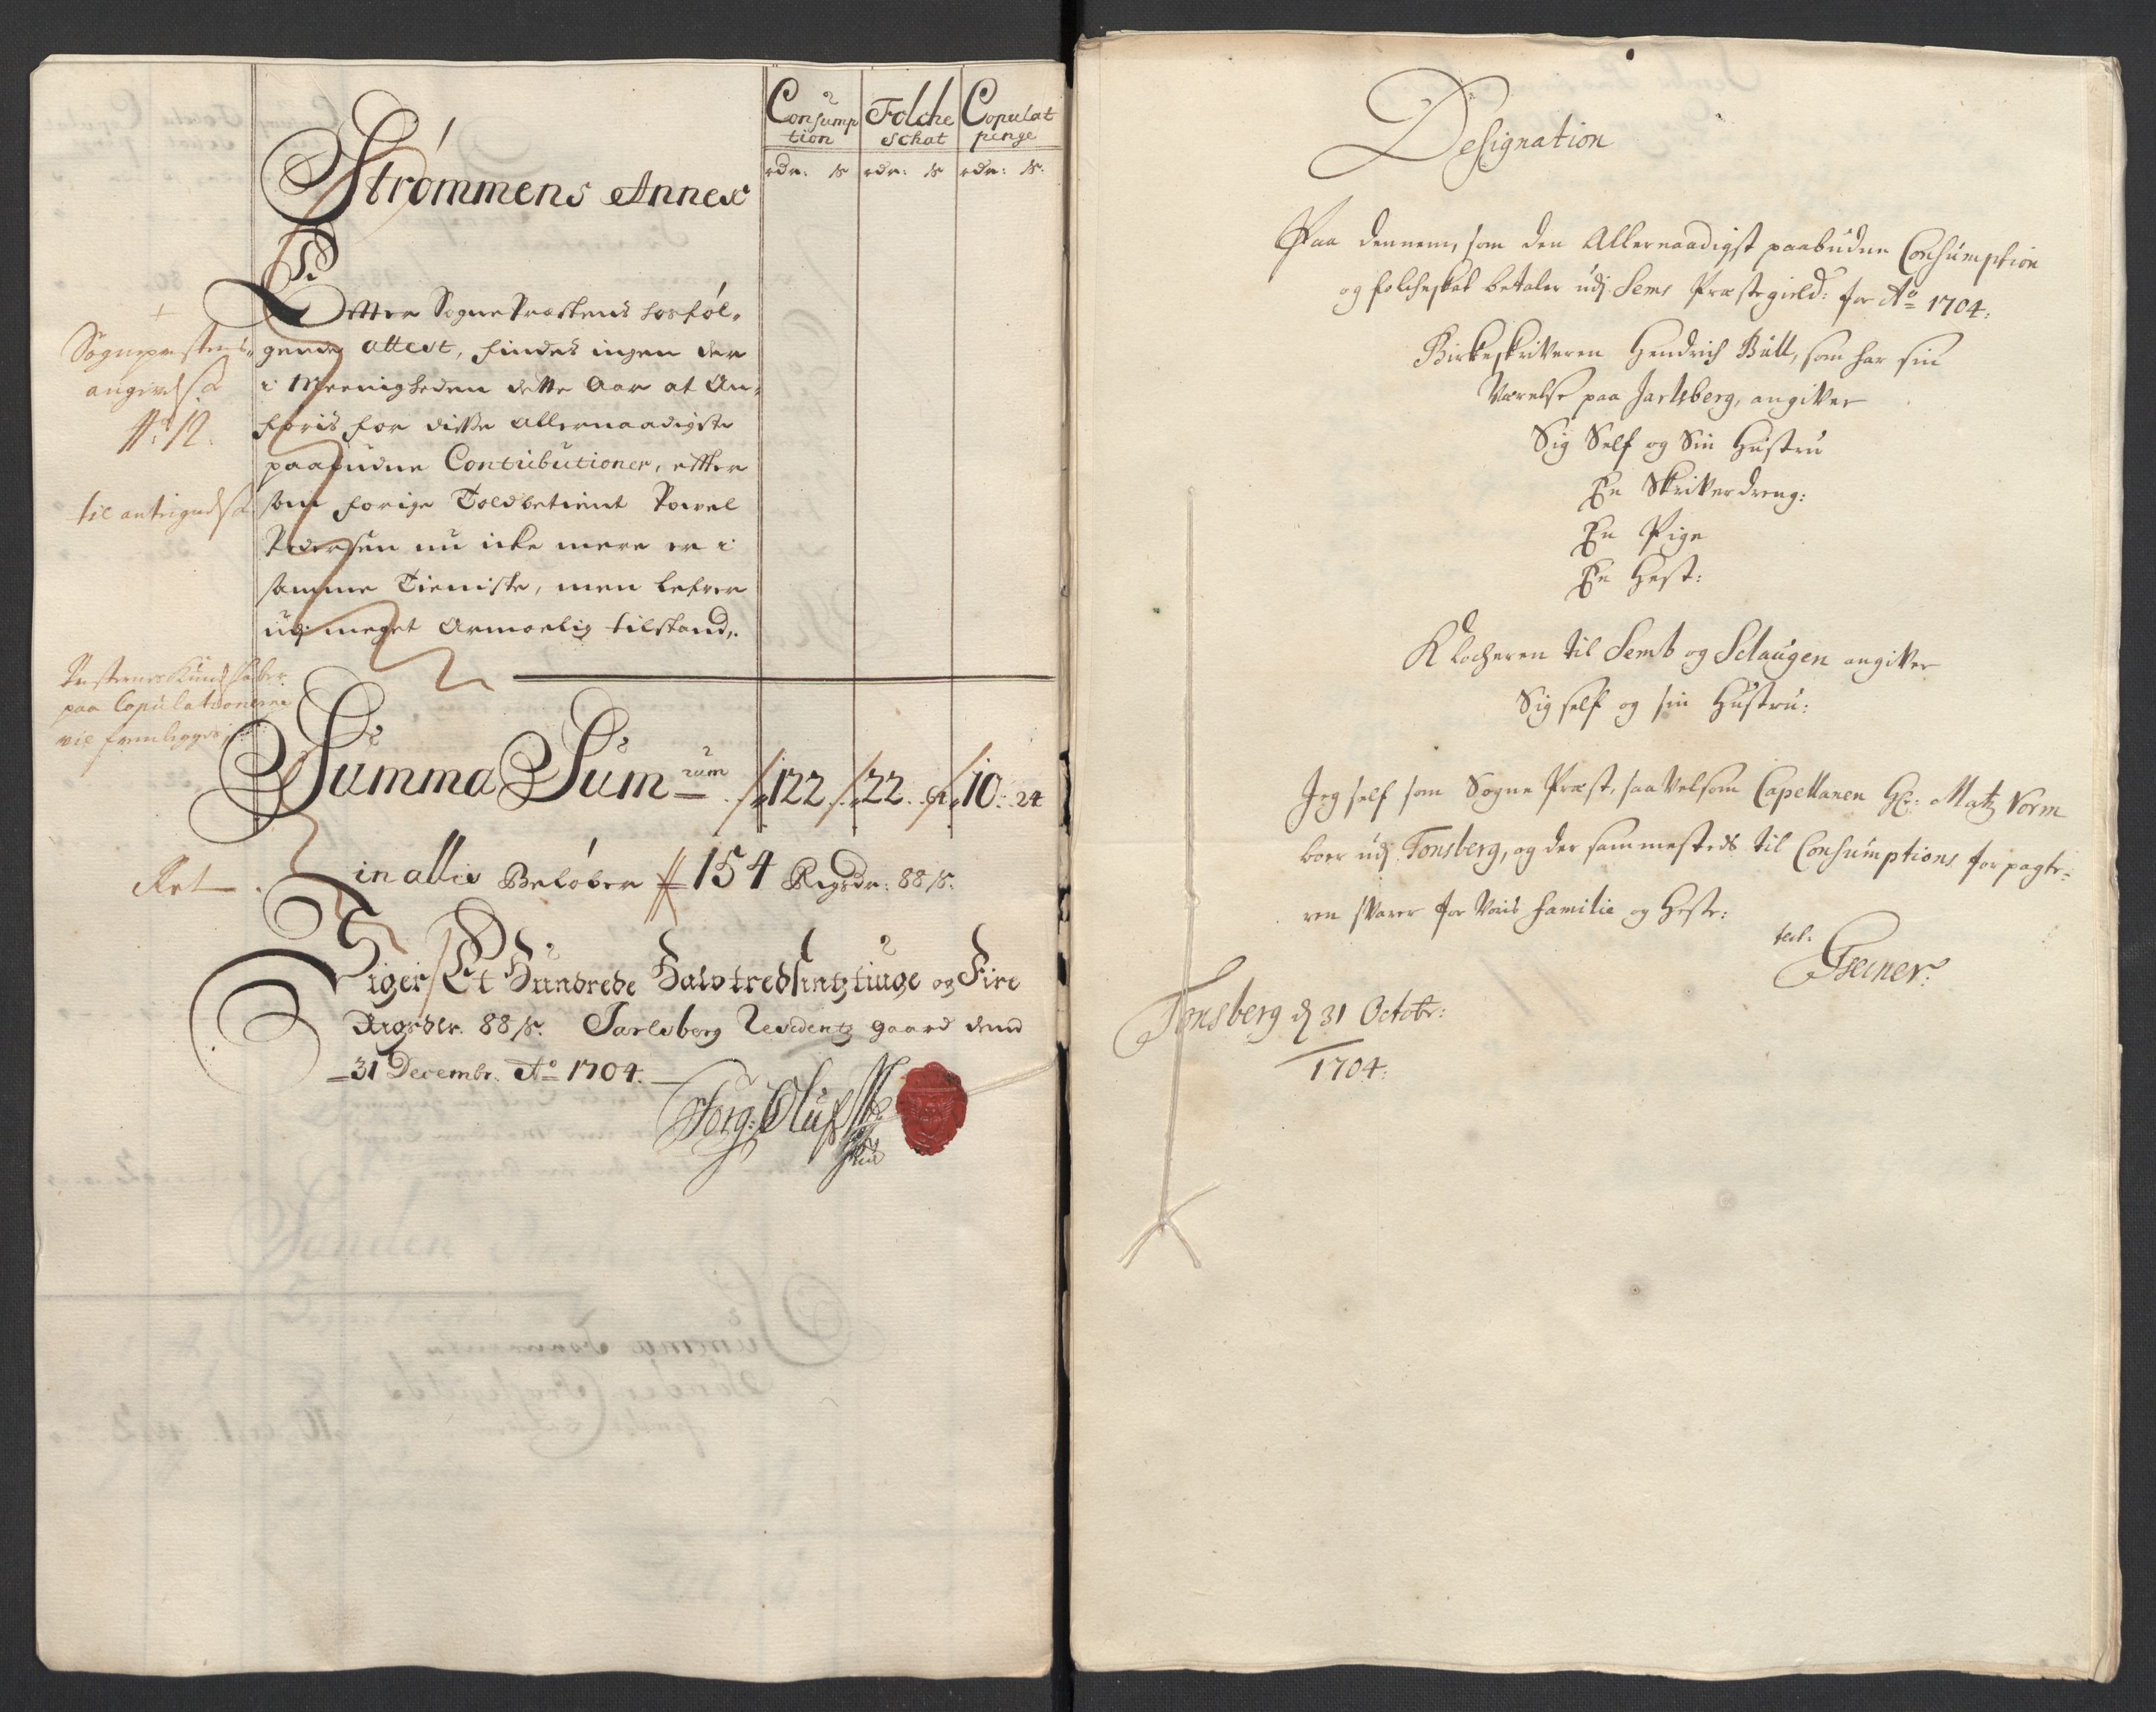 Consump
tion
Folche
schat
Copulat
penge
rdr: ß rdr: ß rdr: ß:
Strømmens Annex
Efftter SognePræstens hosføl-
gende attest, findes ingen der
i Meenigheden dette Aar at An-
føris for disse allernaadigste
paabudne Contributioner, efter
som forige Toldbetient Powel
Pedersen nu icke mere er i
samme Tieniste, men lefver
udj meget Armoelig tilstand,.
+
Sognepræstens
angivelse
No: 12.
til antegnelse
paa Copulationerne
vil fremligges
Summa Sum-rum 122. 22. 64. 10: 24
Ret
in allis Beløber 154 Rigsdr: 88 ß:
Siger Et Hundrede Halvtredsintztiuge og Fire
Rigsdlr. 88 ß: Jarlsberg Residentz gaard dend
31 Decembr. Ao 1704.
Jørg: Oluf
Designation
Paa dennem, som den Allernaadigst paabudne Consumption
og folcheskat betaler udj Sems Præstegield: for Ao 1704:
Birkeskriveren Hendrich Bull, som har sin
Værelse paa Jarlsberg, angiver
Sig Self og Sin Hustru
En Skriverdreng:
En Pige
En Hest:
Klocheren til Semb og Sclaugen angiver
Sig self og sin Hustru:
Jeg self som Sogne Præst, saa velsom Capellanen Hr: Matz Vorm
boer udj Tonsberg, og der sammesteds til Consumptions forpagte-
ren svarer for Voris familie og Heste:
test:
Tonsberg d 31 Octobr:
1704: